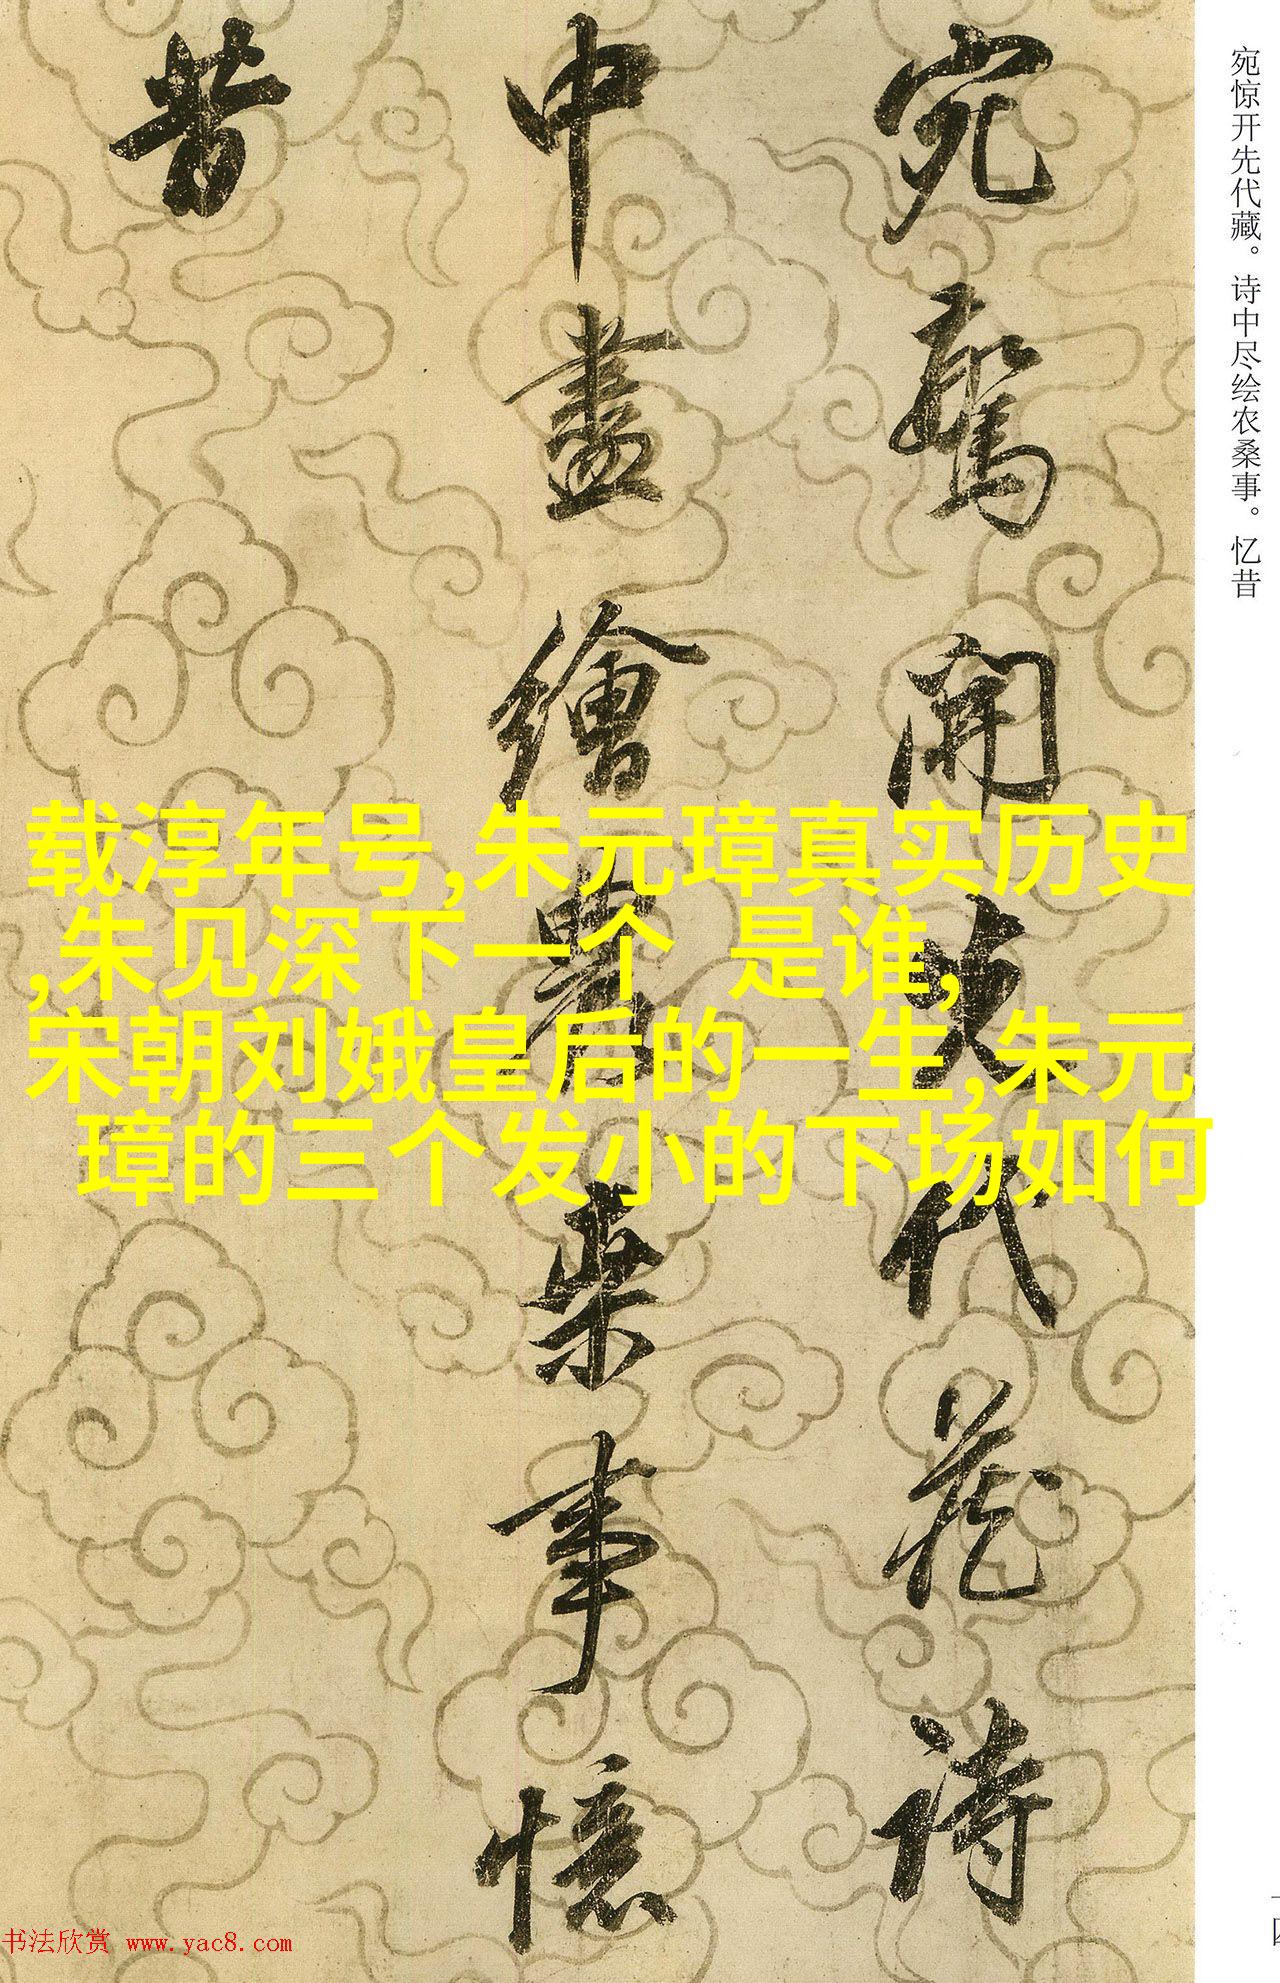 宛惊开先代藏。诗中尽绘农桑事。忆昔
宛驚開先代藏詩
中盡繪農桒事憶
昔
载淳年号,朱元璋真实历史
,朱见深下一个 是谁,
宋朝刘娥皇后的一生,朱元
璋的三个发小的下场如何
书法欣赏 www.yac8.com